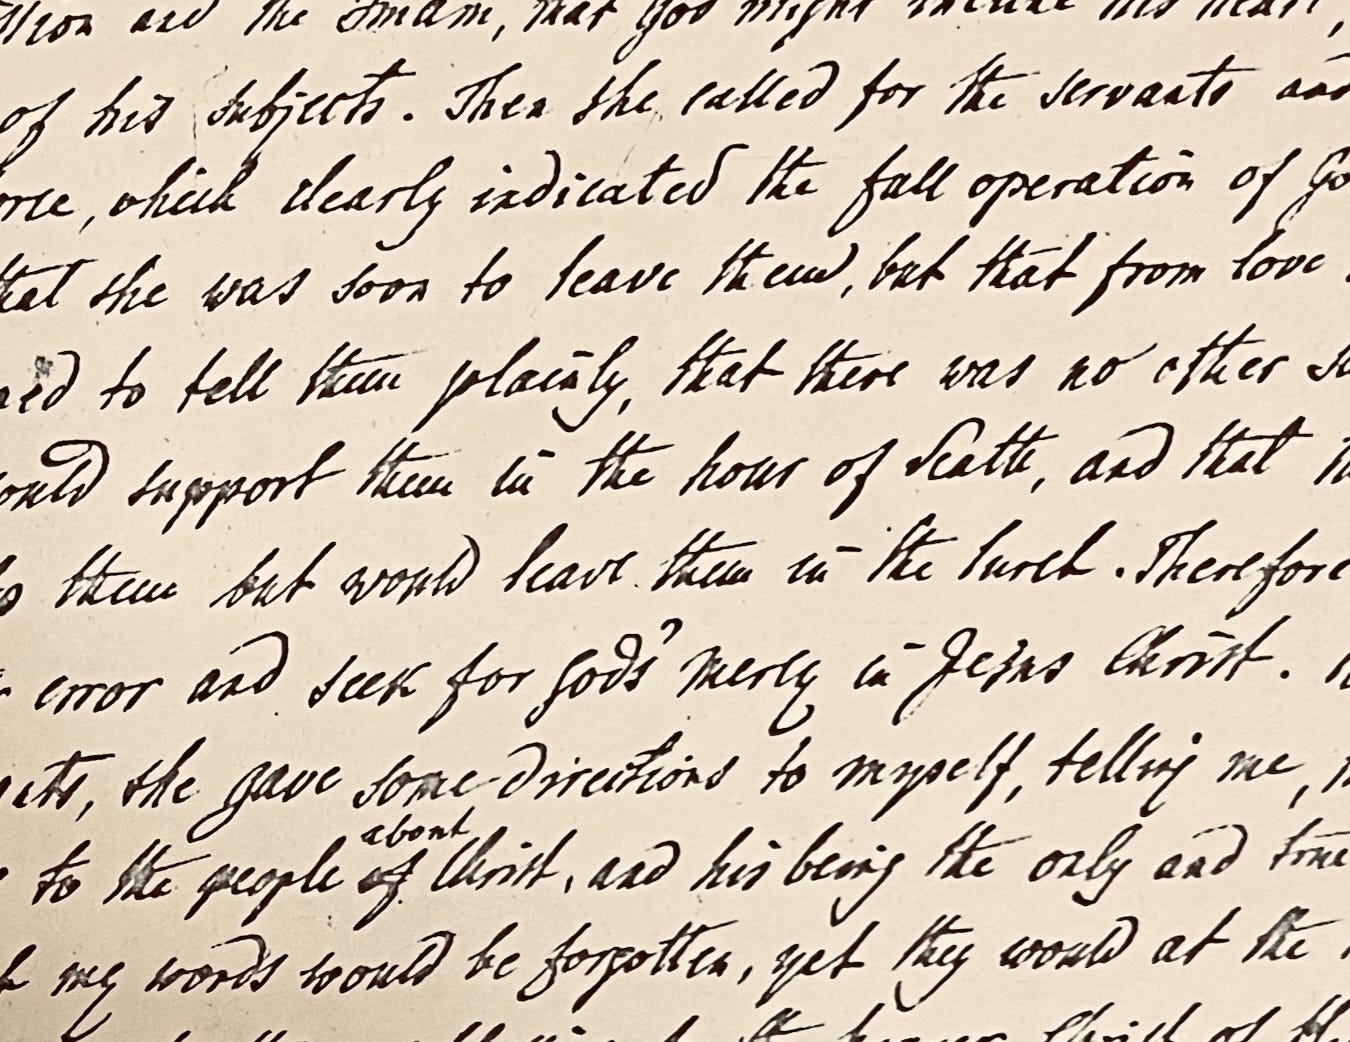 and the Imam, that God might incline his heart,
of his subjects. Then she called for the servants and
which clearly indicated the full operation of
that she was soon to leave them, but that from love
to tell them plainly, that there was no other
support them in the hour of death, and that
them but would leave them in the lurch. Therefore
error and seek for gods' mercy in Jesus Christ.
she gave some directions to myself, telling me,
to the people about of Christ, and his being the only and true
my words would be forgotten, yet they would at the
Christ of